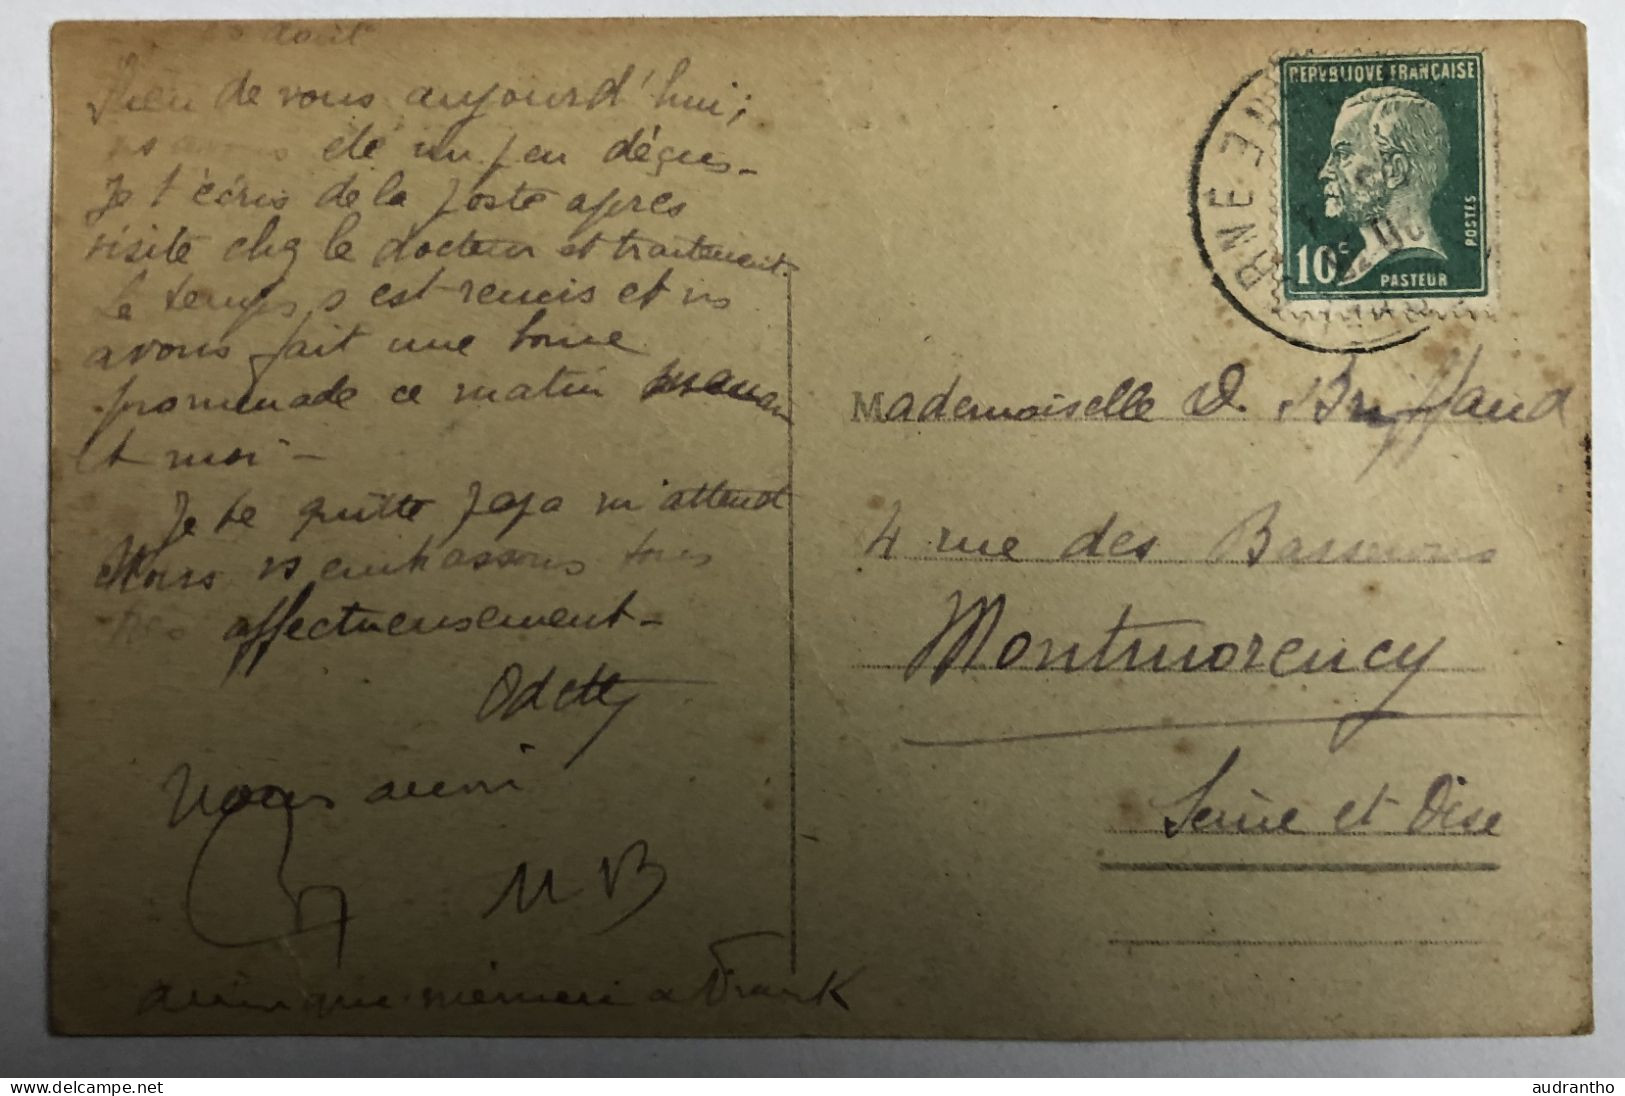 août
Rien de vous aujourd'hui;
ns avons été un peu déçus -
Je t'écris de la poste après
visite chez le docteur et traitement.
Le temps s'est remis et ns
avons fait une bonne
promenade ce matin maman
et moi -
Je te quitte papa m'attend
Nous vs embrassons tous
très affectueusement -
Odette
Nous aussi
M B
ainsi que
a Franck
REPVBLIQVE FRANÇAISE
POSTES
10c
PASTEUR
Mademoiselle O. Briffaud
4 rue des Basserons
Montmorency
Seine et Oise
audrantho
delcampe.net